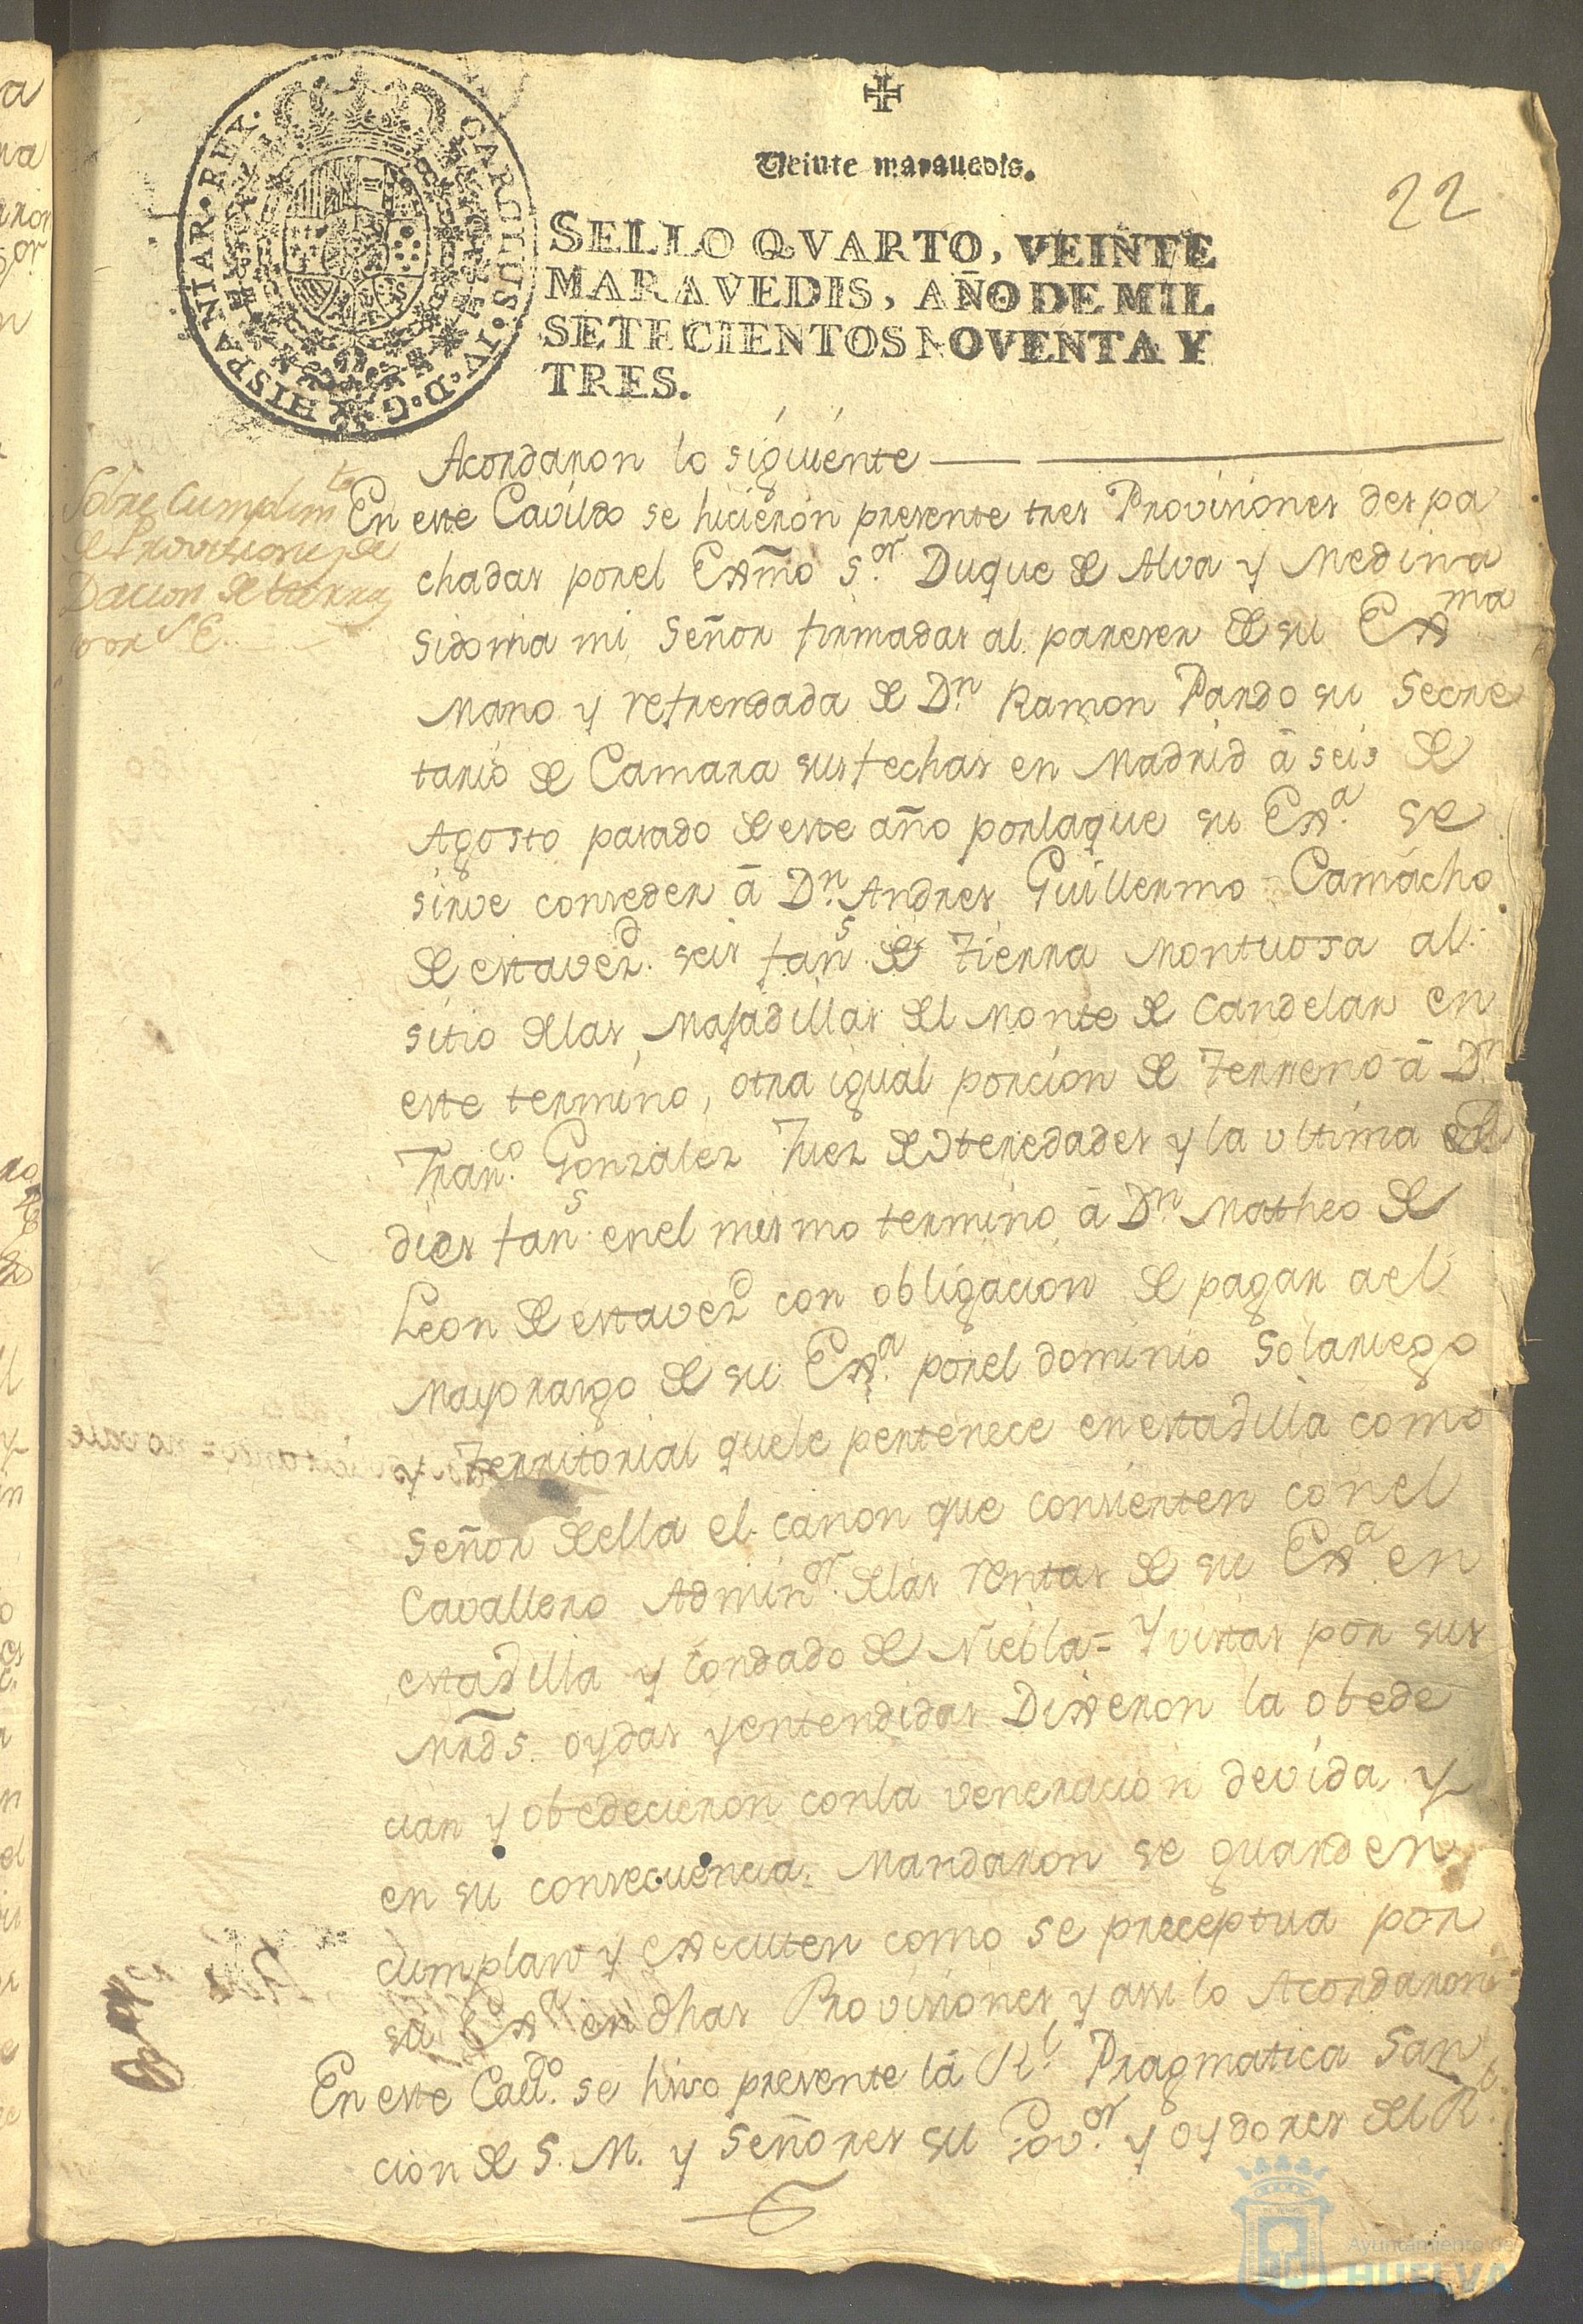 Veinte maravedis.
22
CAROLUS·IV·D·G·HISPANIAR·REX·
SELLO QVARTO, VEINTE
MARAVEDIS, AÑO DE MIL
SETECIENTOS NOVENTA Y
TRES.
Acordaron lo siguiente
Sobre Cumplim.to
de Provisiones de
Dacion de tierras
por S E.
En este Cavildo se hicieron presente tres Provisiones despa
chadas por el Exmo S.or Duque de Alva y Medina
sidonia mi Señor firmadas al pareser de su Exma
Mano y refrendada de D.n Ramon Pardo su Secre
tario de Camara sus fechas en Madrid â seis de
Agosto pasado de este año por laque su Ex.a se
sirve conseder â D.n Andres Guillermo Camacho
de estavez.d seis fan.s de Tierra Montuosa al
sitio delas Majadillas del Monte de Candelar en
este termino, otra igual porcion de Terreno â D.n
Fran.co Gonzalez Juez de Heredades y la ultima de
dies fan.s enel mismo termino â D.n Matheo de
Leon de estavez.d con obligacion de pagar ael
Mayorasgo de su Ex.a porel dominio Solariego
y Territorial quele pertenece en estadilla como
Señor deella el canon que consierten conel
Cavallero Admin.or delas rentas de su Ex.a en
estadilla y Condado de Niebla = Y vistas por sus
Mrds. oydas y entendidas Dixeron la obede
cian y obedecieron conla veneracion devida y
en su consecuencia Mandaron se guarden
cumplan y executen como se preceptua por
su Ex.a en dhas Provisiones y assi lo Acordaron
En este Cav.do se hiso presente la R.l Pragmatica San
cion de S. M. y Señores su Gov.or y oydores del R.l
Ayuntamiento de
HUELVA